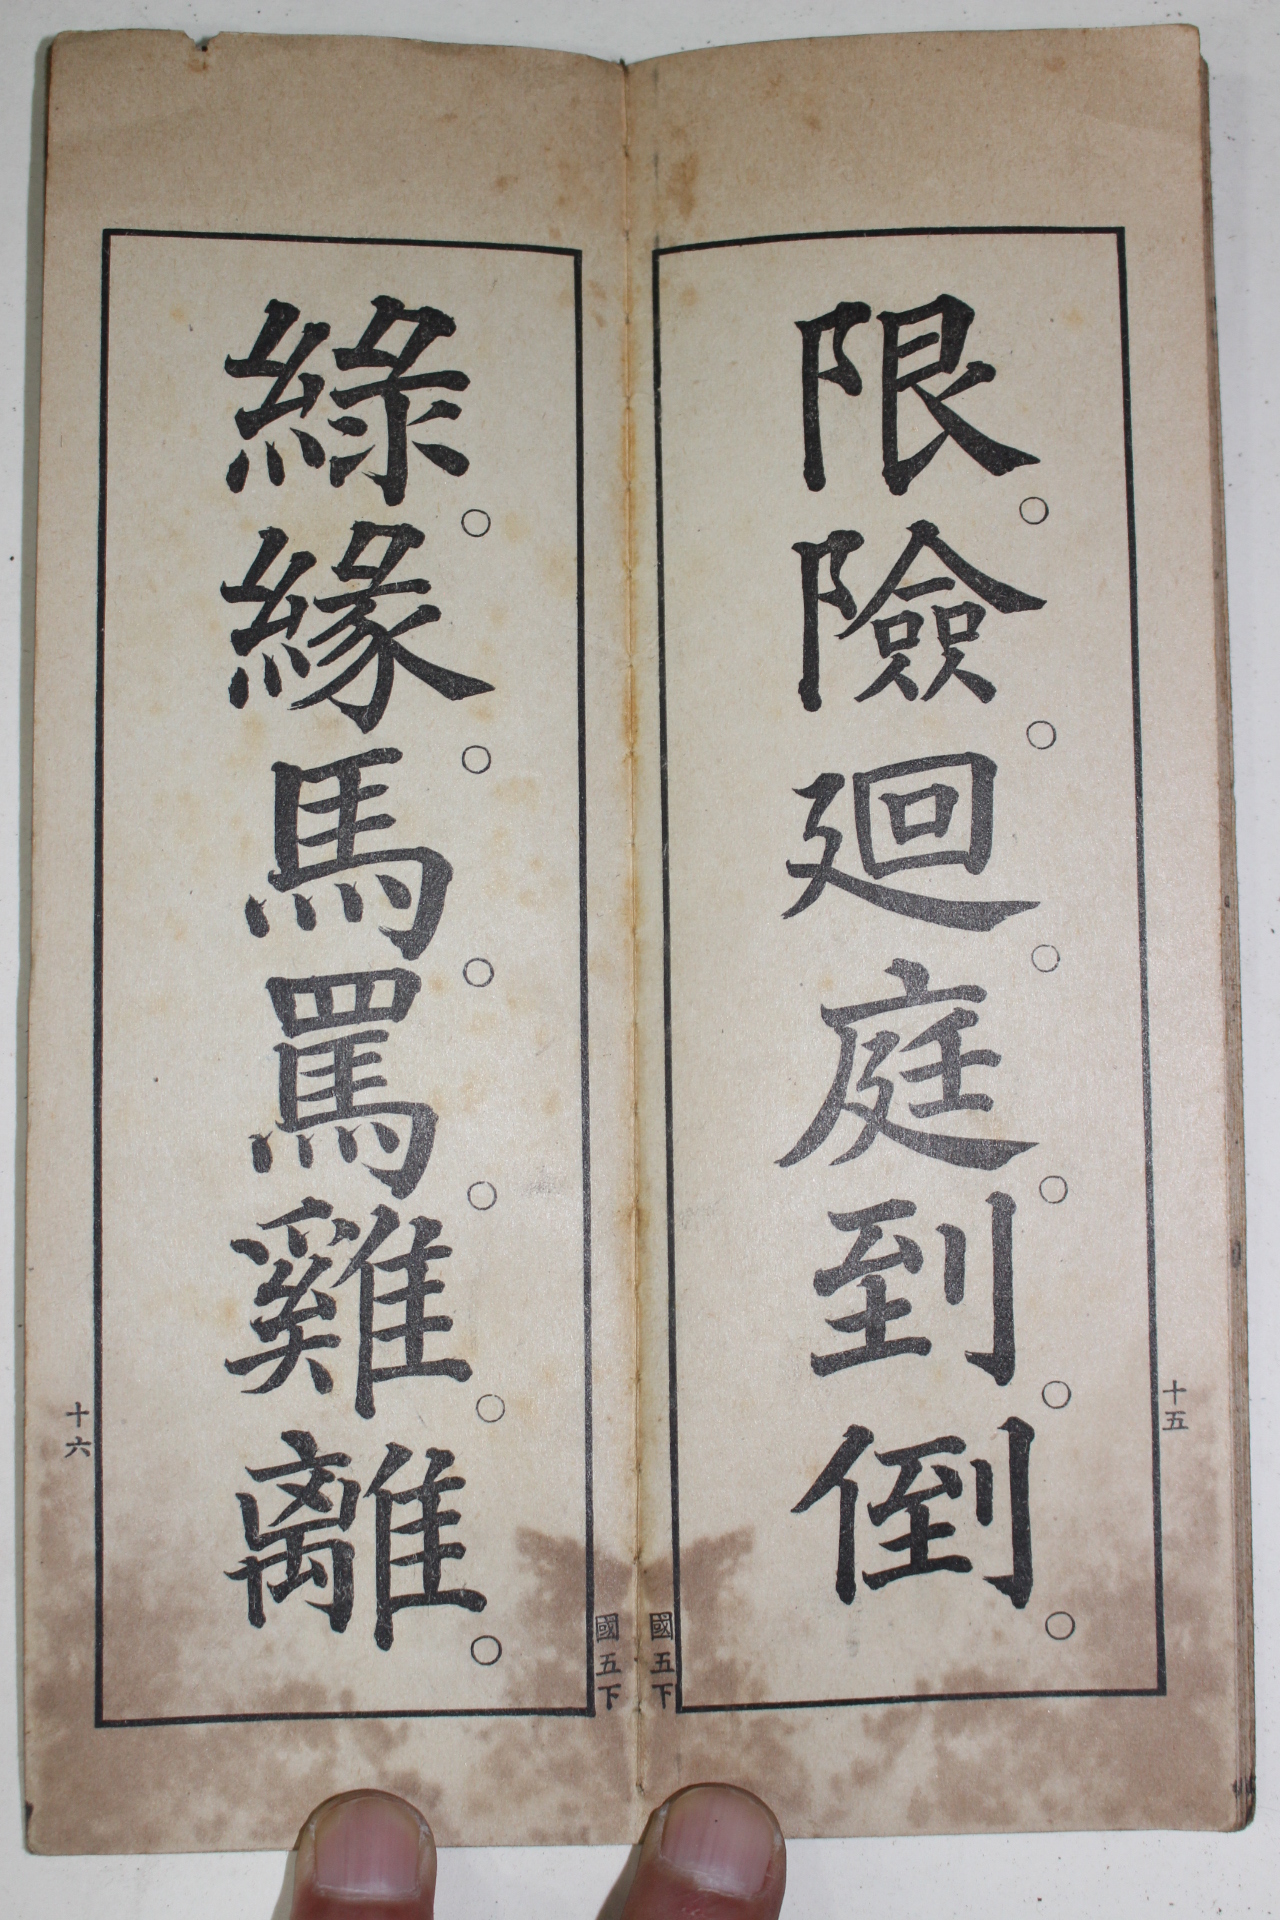 限。險。廻。庭。到。倒。
十五
國五下
綠。緣。馬。罵。雞。離。
十六
國五下